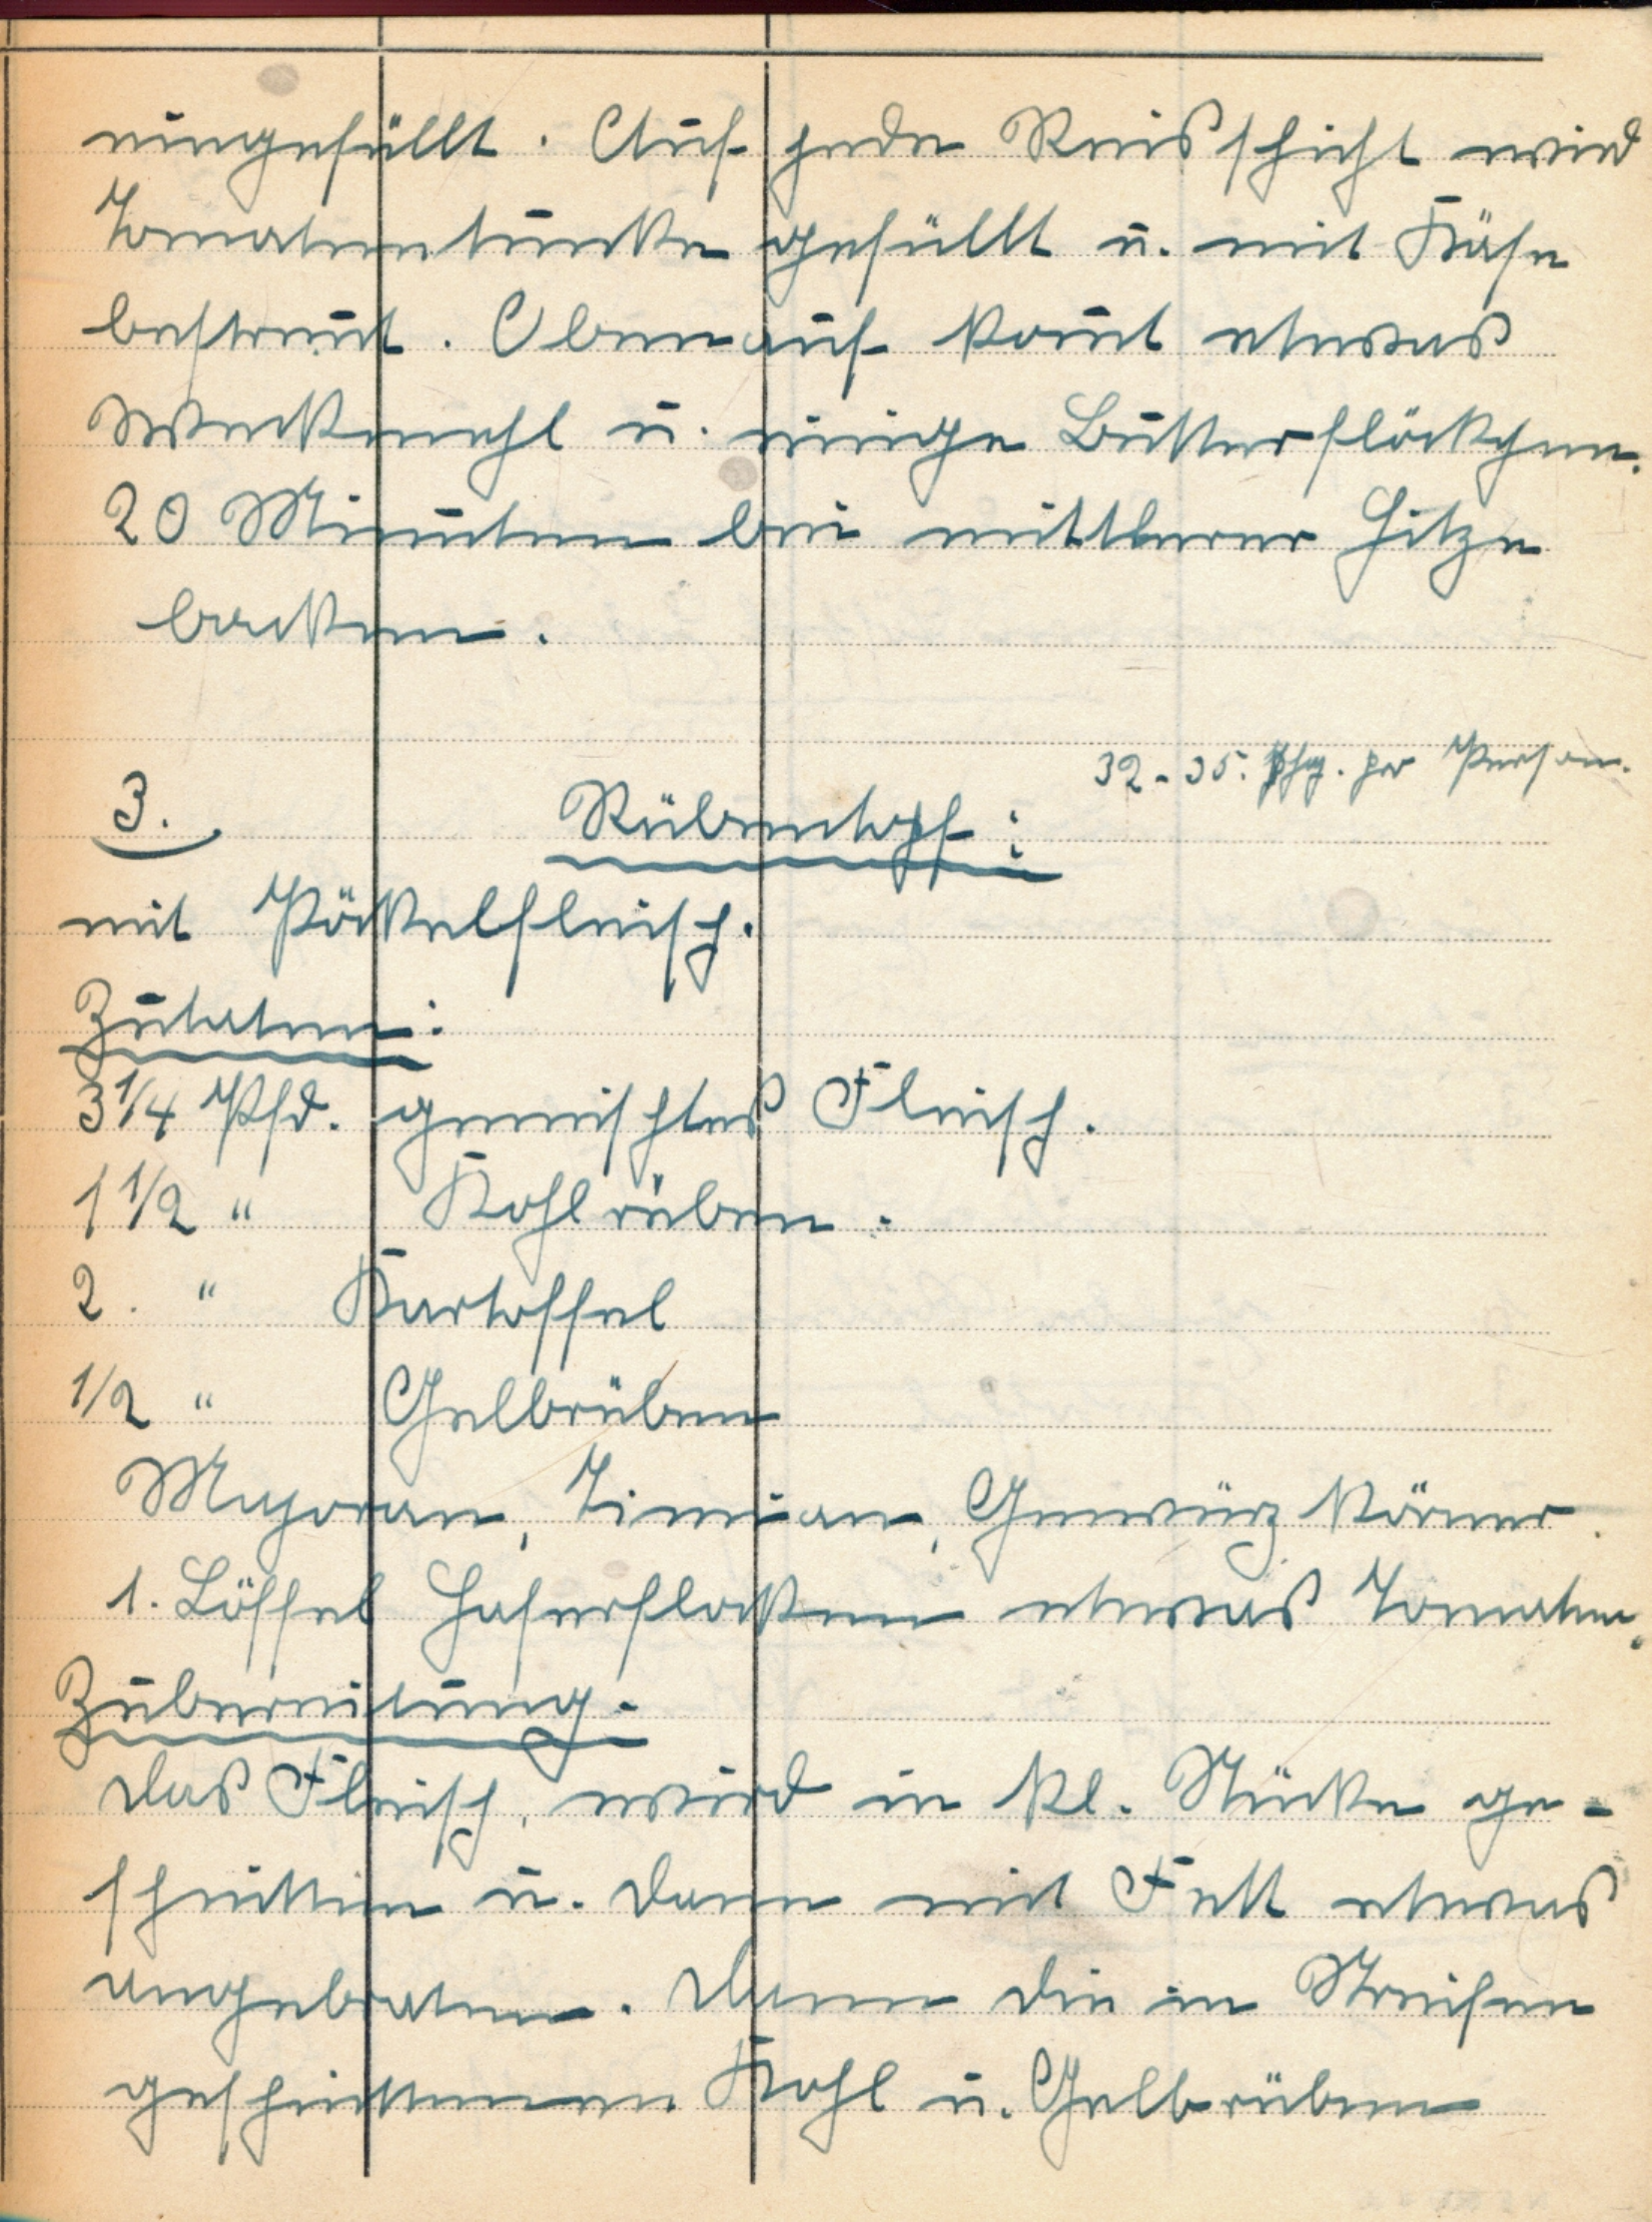 eingefüllt. Auf jede Reisschicht wird
Tomatentunke gefüllt u. mit Käse
bestreut. Obenauf kom̄t etwas
Weckmehl u. einige Butterflöckchen.
20 Minuten bei mittlerer Hitze
backen.
32-35. Pfg. per Person.
3. Rübentopf:
mit Pöckelfleisch.
Zutaten:
3 1/4 Pfd. gemischtes Fleisch.
1 1/2 " Kohlrüben.
2. " Kartoffel
1/2 " Gelbrüben
Majoran, Timian, Gewürzkörner.
1. Löffel Haferflocken etwas Tomaten.
Zubereitung.
Das Fleisch, wird in kl. Stücke ge-
schnitten u. dann mit Fett etwas
angebraten. Dann die in Streifen
geschnittenen Kohl u. Gelbrüben